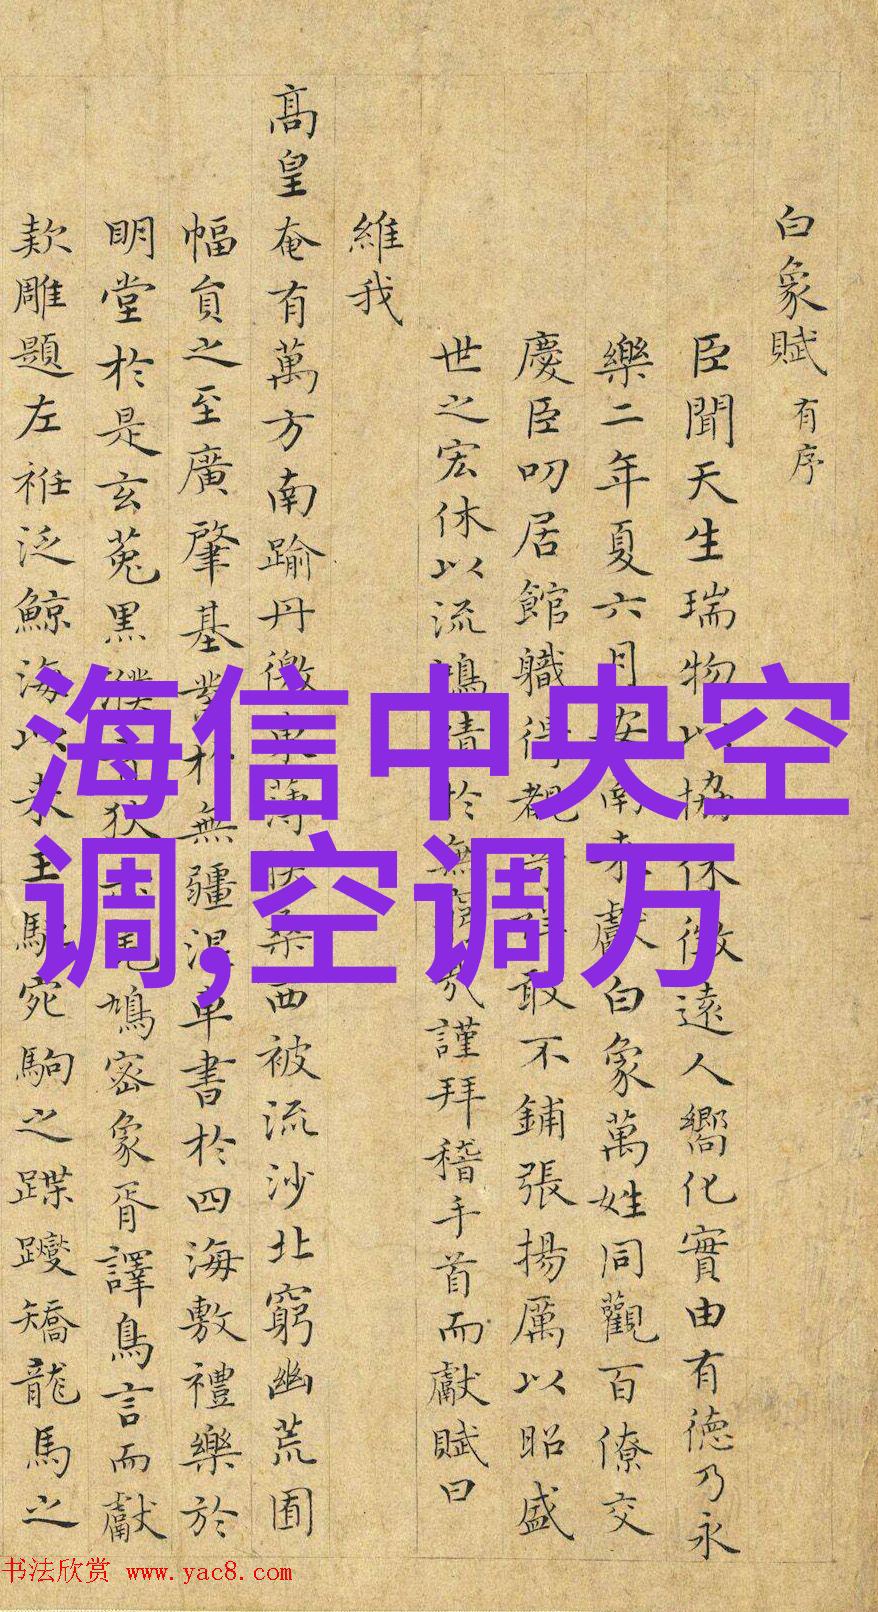 白象賦有序
臣聞天生瑞物以協休徵遠人嚮化實由有德乃永
樂二年夏六月安南来獻白象萬姓同觀百僚交
慶臣叨居館職得覩敢不鋪張揚厲以昭盛
世之宏休以流鴻於無哉謹拜稽手首而獻賦曰
維我
高皇奄有萬方南踰丹徼東薄桑西被流沙北窮幽荒圃
幅員之至廣肇基業於無疆混車書於四海敷禮樂於
明堂於是玄菟黒濮狄鳩密象胥譯鳥言而獻
款雕題左袵泛鯨海以来王駃宛駒之蹀躞矯龍馬之
海信中央空
调,空调万
书法欣赏 www.yac8.com